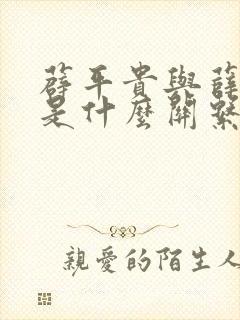 薛平貴與薛
是什麼關繫
親愛的陌生人